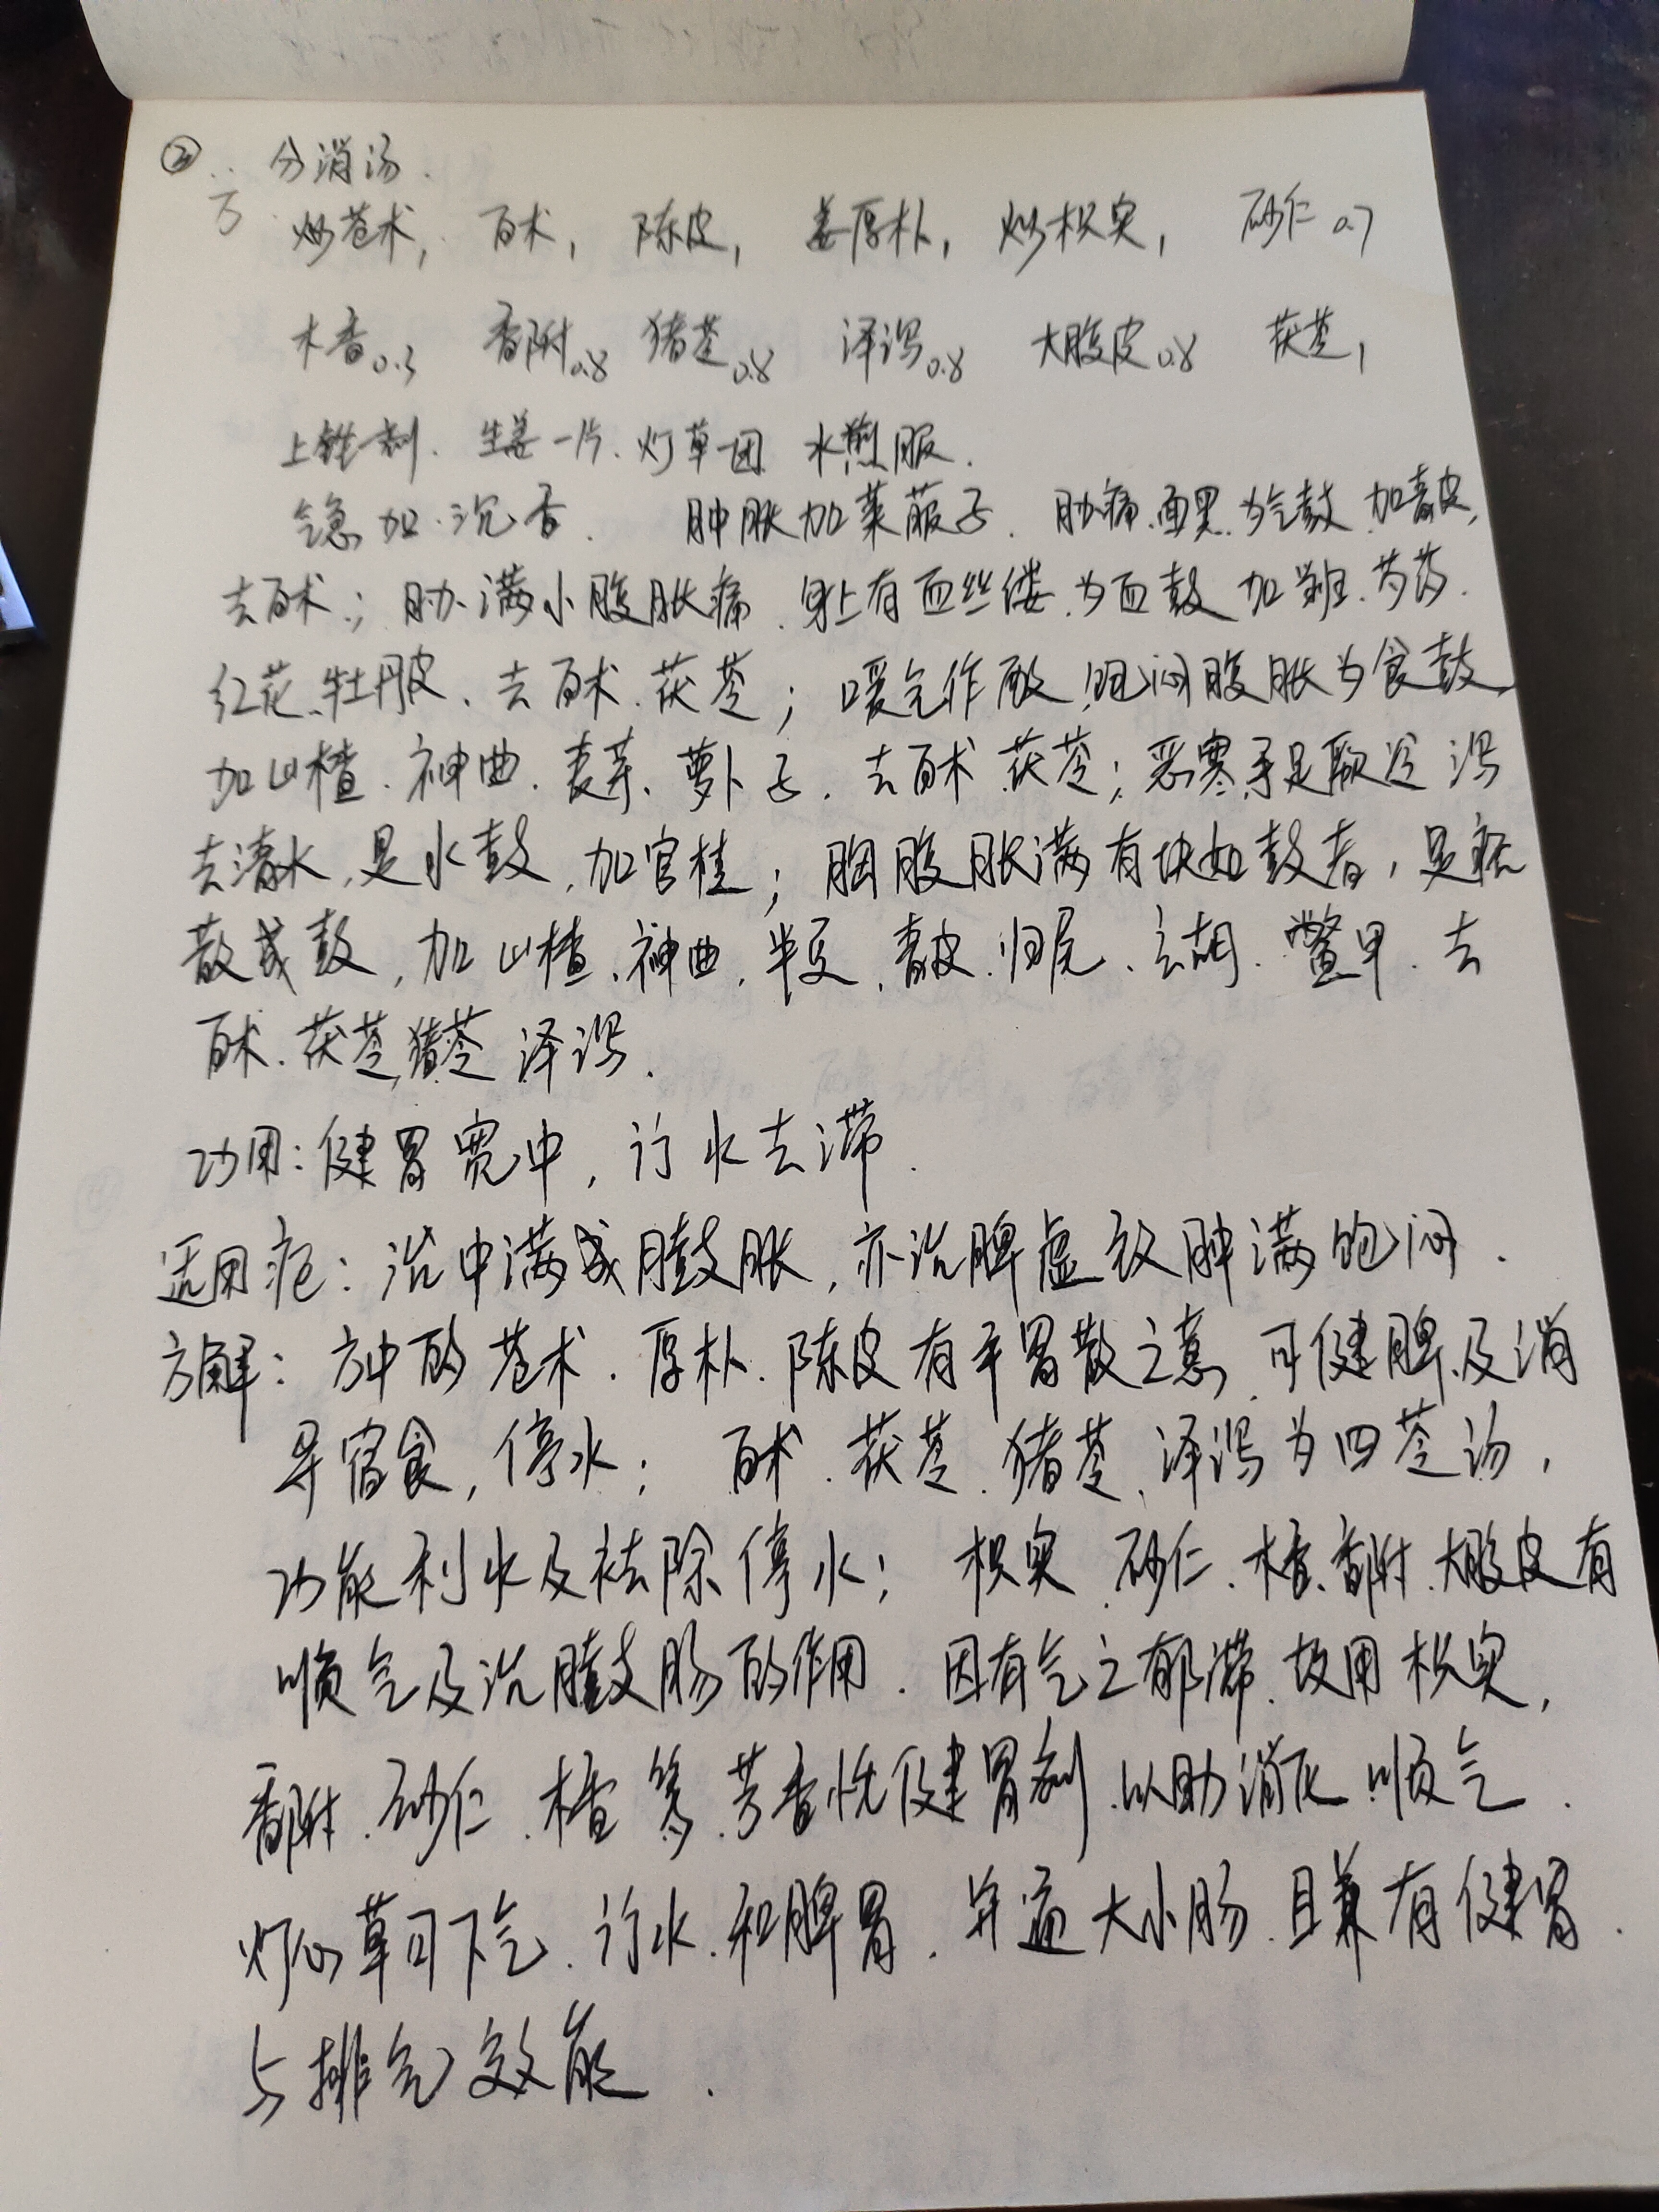 ② 分消汤.
方 炒苍术, 白术, 陈皮, 姜厚朴, 炒枳实, 砂仁0.7
木香0.3 香附0.8 猪苓0.8 泽泻0.8 大腹皮0.8 茯苓1
上锉一剂. 生姜一片. 灯草一团 水煎服.
气急加沉香. 肿胀加莱菔子. 胁痛.面黑.为气鼓.加青皮,
去白术; 胁满小腹胀痛.身上有血丝缕.为血鼓 加当归.芍药.
红花、牡丹皮、去白术.茯苓; 嗳气作酸.饱闷腹胀为食鼓,
加山楂.神曲.麦芽、萝卜子.去白术 茯苓; 恶寒.手足厥冷 泻
去清水,是水鼓,加官桂; 胸腹胀满有块如鼓者,是痞
散成鼓,加山楂、神曲,半夏、青皮.归尾、玄胡.鳖甲.去
白术.茯苓.猪苓 泽泻.
功用:健胃宽中,行水去滞.
适用症:治中满成膨胀,亦治脾虚发肿满饱闷.
方解:方中的苍术.厚朴.陈皮有平胃散之意,可健脾及消
导宿食,停水; 白术.茯苓.猪苓、泽泻为四苓汤,
功能利水及祛除停水; 枳实.砂仁.木香.香附.大腹皮有
顺气及治膨肠的作用.因有气之郁滞.故用枳实,
香附.砂仁.木香等.芳香性健胃剂.以助消化.顺气.
灯心草可下气.行水.和脾胃.并通大小肠.且兼有健胃.
与排气效能.